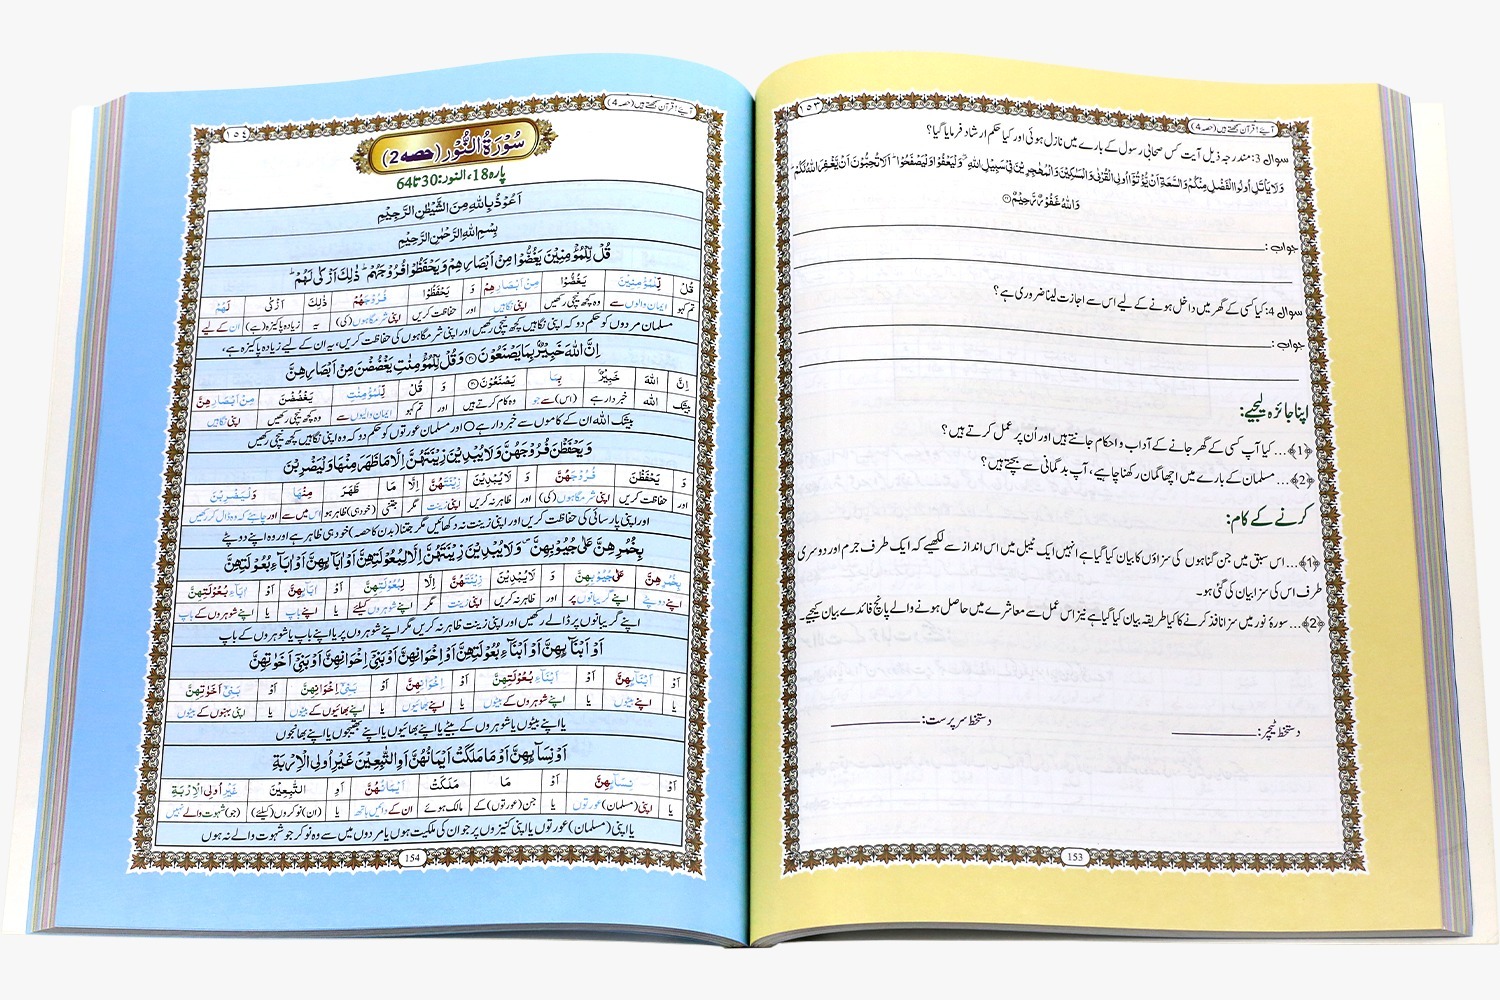 ١٥٣
آیئے! قرآن سمجھتے ہیں (حصہ 4)
سوال 3: مندرجہ ذیل آیت کس صحابی رسول کے بارے میں نازل ہوئی اور کیا حکم ارشاد فرمایا گیا؟
وَلَا یَاْتَلِ اُولُوا الْفَضْلِ مِنْكُمْ وَالسَّعَةِ اَنْ یُّؤْتُوْۤا اُولِی الْقُرْبٰى وَالْمَسٰكِیْنَ وَالْمُهٰجِرِیْنَ فِیْ سَبِیْلِ اللهِ ۖ وَلْیَعْفُوْا وَلْیَصْفَحُوْا ؕ اَلَا تُحِبُّوْنَ اَنْ یَّغْفِرَ اللهُ لَكُمْ ؕ
وَاللهُ غَفُوْرٌ رَّحِیْمٌ ﴿۲۲﴾
جواب:
سوال 4: کیا کسی کے گھر میں داخل ہونے کے لیے اس سے اجازت لینا ضروری ہے؟
جواب:
اپنا جائزہ لیجیے:
﴿1﴾... کیا آپ کسی کے گھر جانے کے آداب و احکام جانتے ہیں اور اُن پر عمل کرتے ہیں؟
﴿2﴾... مسلمان کے بارے میں اچھا گمان رکھنا چاہیے، آپ بدگمانی سے بچتے ہیں؟
کرنے کے کام:
﴿1﴾... اس سبق میں جن گناہوں کی سزاؤں کا بیان کیا گیا ہے انہیں ایک ٹیبل میں اس انداز سے لکھیے کہ ایک طرف جرم اور دوسری
طرف اس کی سزا بیان کی گئی ہو۔
﴿2﴾... سورۂ نور میں سزا نافذ کرنے کا کیا طریقہ بیان کیا گیا ہے نیز اس عمل سے معاشرے میں حاصل ہونے والے پانچ فائدے بیان کیجیے۔
دستخط ٹیچر: دستخط سرپرست:
153
آیئے! قرآن سمجھتے ہیں (حصہ 4)
١٥٤
سُوْرَةُ النُّوْر (حصہ 2)
پارہ 18، النور: 30 تا 64
اَعُوْذُ بِاللهِ مِنَ الشَّیْطٰنِ الرَّجِیْمِ
بِسْمِ اللهِ الرَّحْمٰنِ الرَّحِیْمِ
قُلْ لِّلْمُؤْمِنِیْنَ یَغُضُّوْا مِنْ اَبْصَارِهِمْ وَیَحْفَظُوْا فُرُوْجَهُمْ ؕ ذٰلِكَ اَزْكٰى لَهُمْ ؕ
قُلْ لِّلْمُؤْمِنِیْنَ یَغُضُّوْا مِنْ اَبْصَارِهِمْ وَ یَحْفَظُوْا فُرُوْجَهُمْ ذٰلِكَ اَزْكٰى لَهُمْ
تم کہو ایمان والوں سے وہ کچھ نیچی رکھیں اپنی نگاہیں اور حفاظت کریں اپنی شرمگاہوں (کی) یہ زیادہ پاکیزہ (ہے) ان کے لیے
مسلمان مردوں کو حکم دو کہ اپنی نگاہیں کچھ نیچی رکھیں اور اپنی شرمگاہوں کی حفاظت کریں، یہ ان کے لیے زیادہ پاکیزہ ہے،
اِنَّ اللهَ خَبِیْرٌۢ بِمَا یَصْنَعُوْنَ ﴿۳۰﴾ وَقُلْ لِّلْمُؤْمِنٰتِ یَغْضُضْنَ مِنْ اَبْصَارِهِنَّ
اِنَّ اللهَ خَبِیْرٌۢ بِمَا یَصْنَعُوْنَ ﴿۳۰﴾ وَ قُلْ لِّلْمُؤْمِنٰتِ یَغْضُضْنَ مِنْ اَبْصَارِهِنَّ
بیشک اللہ خبردار ہے (اس) سے جو وہ کام کرتے ہیں اور تم کہو ایمان والیوں سے وہ کچھ نیچی رکھیں اپنی نگاہیں
بیشک اللہ ان کے کاموں سے خبردار ہے ○ اور مسلمان عورتوں کو حکم دو کہ وہ اپنی نگاہیں کچھ نیچی رکھیں
وَیَحْفَظْنَ فُرُوْجَهُنَّ وَلَا یُبْدِیْنَ زِیْنَتَهُنَّ اِلَّا مَا ظَهَرَ مِنْهَا وَلْیَضْرِبْنَ
وَ یَحْفَظْنَ فُرُوْجَهُنَّ وَ لَا یُبْدِیْنَ زِیْنَتَهُنَّ اِلَّا مَا ظَهَرَ مِنْهَا وَلْیَضْرِبْنَ
اور حفاظت کریں اپنی شرمگاہوں (کی) اور ظاہر نہ کریں اپنی زینت مگر جتنی (خود ہی) ظاہر ہو اس میں سے اور چاہئے کہ وہ ڈال کر رکھیں
اور اپنی پارسائی کی حفاظت کریں اور اپنی زینت نہ دکھائیں مگر جتنا (بدن کا حصہ) خود ہی ظاہر ہے اور وہ اپنے دوپٹے
بِخُمُرِهِنَّ عَلٰى جُیُوْبِهِنَّ ۪ وَلَا یُبْدِیْنَ زِیْنَتَهُنَّ اِلَّا لِبُعُوْلَتِهِنَّ اَوْ اٰبَآىٕهِنَّ اَوْ اٰبَآءِ بُعُوْلَتِهِنَّ
بِخُمُرِهِنَّ عَلٰى جُیُوْبِهِنَّ وَ لَا یُبْدِیْنَ زِیْنَتَهُنَّ اِلَّا لِبُعُوْلَتِهِنَّ اَوْ اٰبَآىٕهِنَّ اَوْ اٰبَآءِ بُعُوْلَتِهِنَّ
اپنے دوپٹے اپنے گریبانوں پر اور ظاہر نہ کریں اپنی زینت مگر اپنے شوہروں کیلئے یا اپنے باپ یا اپنے شوہروں کے باپ
اپنے گریبانوں پر ڈالے رکھیں اور اپنی زینت ظاہر نہ کریں مگر اپنے شوہروں پر یا اپنے باپ یا شوہروں کے باپ
اَوْ اَبْنَآىٕهِنَّ اَوْ اَبْنَآءِ بُعُوْلَتِهِنَّ اَوْ اِخْوَانِهِنَّ اَوْ بَنِیْۤ اِخْوَانِهِنَّ اَوْ بَنِیْۤ اَخَوٰتِهِنَّ
اَوْ اَبْنَآىٕهِنَّ اَوْ اَبْنَآءِ بُعُوْلَتِهِنَّ اَوْ اِخْوَانِهِنَّ اَوْ بَنِیْۤ اِخْوَانِهِنَّ اَوْ بَنِیْۤ اَخَوٰتِهِنَّ
یا اپنے بیٹوں یا اپنے شوہروں کے بیٹوں یا اپنے بھائیوں یا اپنے بھائیوں کے بیٹوں یا اپنی بہنوں کے بیٹوں
یا اپنے بیٹوں یا شوہروں کے بیٹے یا اپنے بھائیوں یا اپنے بھتیجوں یا اپنے بھانجوں
اَوْ نِسَآىٕهِنَّ اَوْ مَا مَلَكَتْ اَیْمَانُهُنَّ اَوِ التّٰبِعِیْنَ غَیْرِ اُولِی الْاِرْبَةِ
اَوْ نِسَآىٕهِنَّ اَوْ مَا مَلَكَتْ اَیْمَانُهُنَّ اَوِ التّٰبِعِیْنَ غَیْرِ اُولِی الْاِرْبَةِ
یا اپنی (مسلمان) عورتوں یا جن (عورتوں) کے مالک ہوئے ان کے دائیں ہاتھ یا (ان) نوکروں (کیلئے) (جو) شہوت والے نہیں
یا اپنی (مسلمان) عورتوں یا اپنی کنیزوں پر جو ان کی ملکیت ہوں یا مردوں میں سے وہ نوکر جو شہوت والے نہ ہوں
154